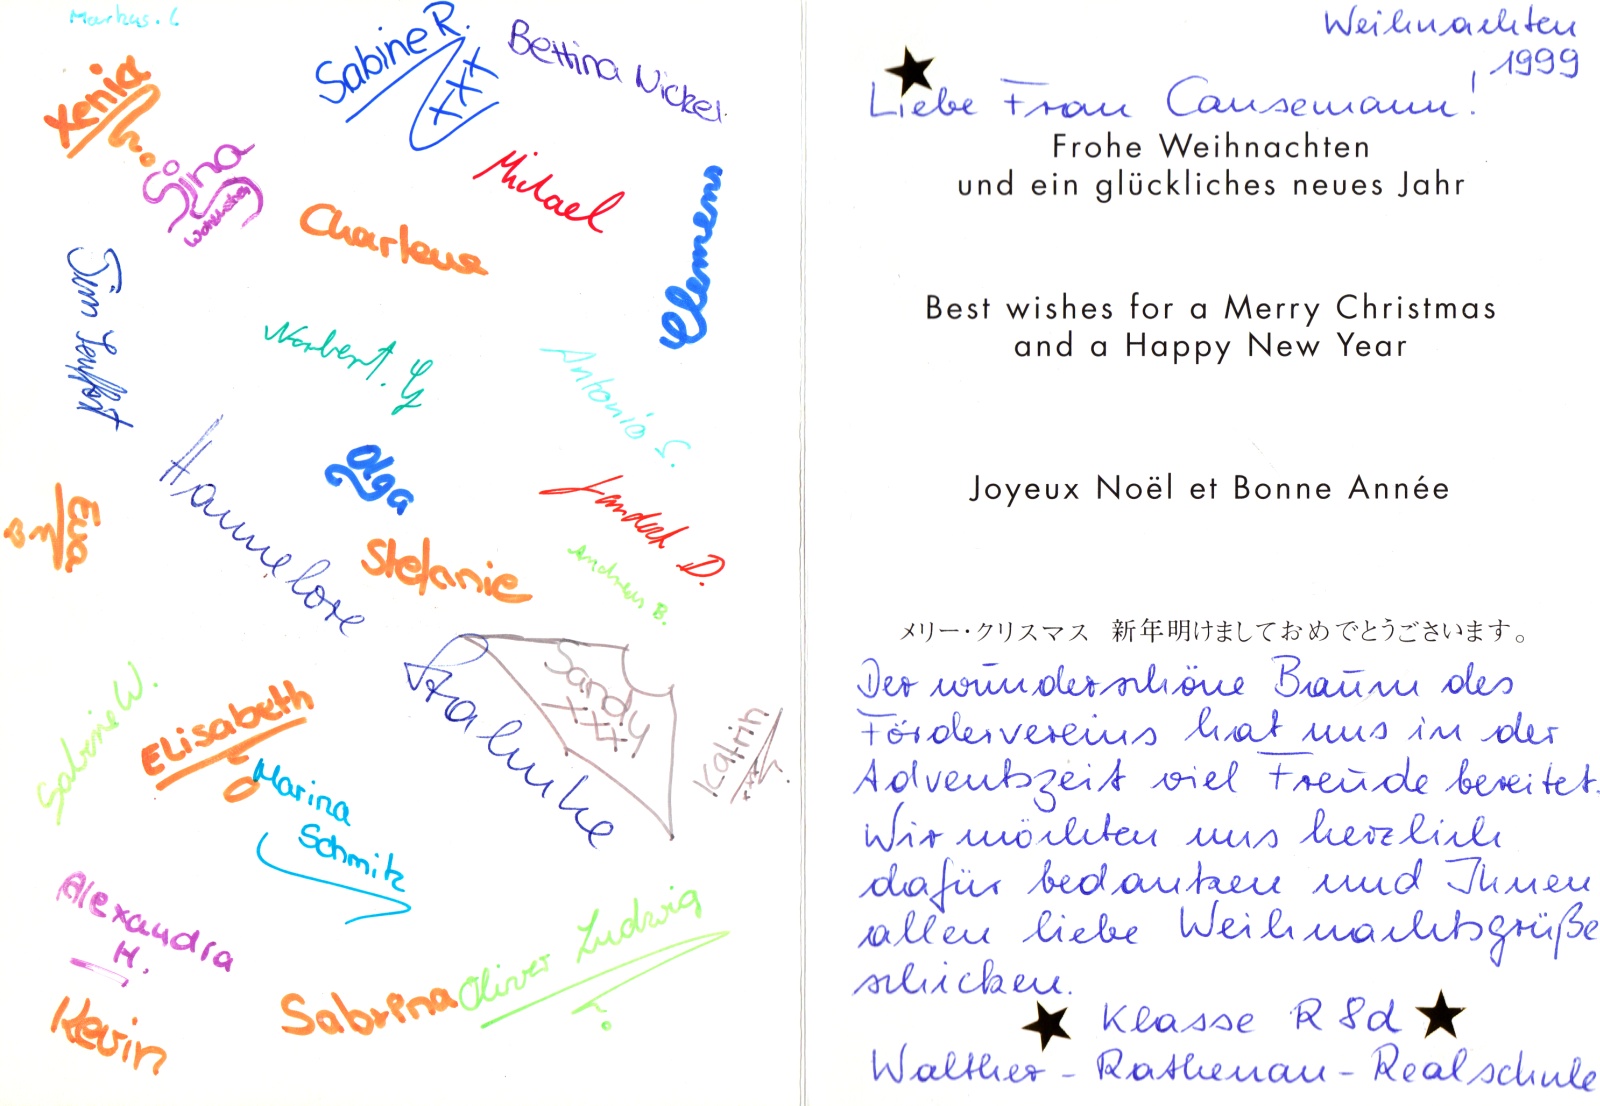 Markus. C
Xenia
Sina
Sabine R.
xxx
Bettina Nickel
Michael
Clemens
Charlene
Tim Seuffert
Norbert. G
Antonio S.
Olga
Hannelore
Eva
Stefanie
D.
Andreas B.
Sandy
xxx
Katrin
Sabine W.
Elisabeth
Marina
Schmitz
Alexandra
H.
Kevin
Sabrina
Oliver Ludwig
Weihnachten
1999
Liebe Frau Causemann!
Frohe Weihnachten
und ein glückliches neues Jahr
Best wishes for a Merry Christmas
and a Happy New Year
Joyeux Noël et Bonne Année
メリー・クリスマス 新年明けましておめでとうございます。
Der wunderschöne Baum des
Fördervereins hat uns in der
Adventszeit viel Freude bereitet.
Wir möchten uns herzlich
dafür bedanken und Ihnen
allen liebe Weihnachtsgrüße
schicken.
Klasse R 8d
Walther-Rathenau-Realschule